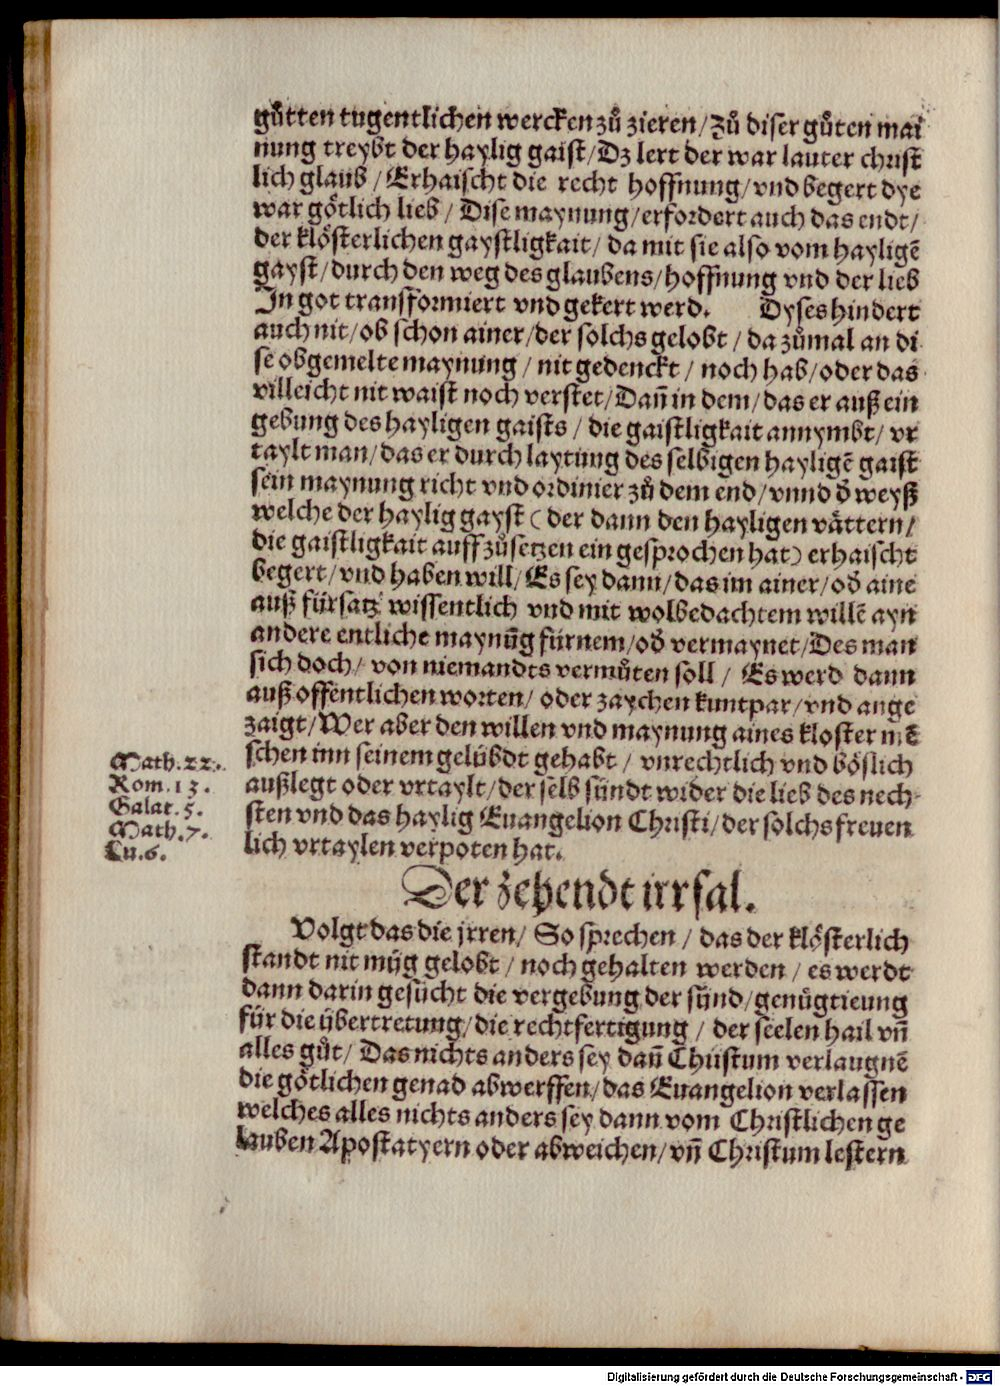 gůtten tugentlichen wercken zů zieren/Zů diser gůten mai
nung treybt der haylig gaist/Dz lert der war lauter christ
lich glaub/Erhaischt die recht hoffnung/vnd begert dye
war goͤtlich lieb/Dise maynung/erfordert auch das endt/
der kloͤsterlichen gaystligkait/da mit sie also vom hayligē
gayst/durch den weg des glaubens/hoffnung vnd der lieb
In got transformiert vnd gekert werd. Dyses hindert
auch nit/ob schon ainer/der solchs gelobt/da zůmal an di
se obgemelte maynung/nit gedenckt/noch hab/oder das
villeicht nit waist noch verstet/Dañ in dem/das er auß ein
gebung des hayligen gaists/die gaistligkait annymbt/vr
taylt man/das er durch laytung des selbigen hayligē gaist
sein maynung richt vnd ordinier zů dem end/vnnd d̕ weyß
welche der haylig gayst (der dann den hayligen vaͤttern/
die gaistligkait auffzůsetzen ein gesprochen hat) erhaischt
begert/vnd haben will/Es sey dann/das im ainer/od̕ aine
auß fürsatz wissentlich vnd mit wolbedachtem willē ayn
andere entliche maynūg fürnem/od̕ vermaynet/Des man
sich doch/von niemandts vermůten soll/Es werd dann
auß offentlichen worten/oder zaychen kuntpar/vnd ange
zaigt/Wer aber den willen vnd maynung aines kloster mē
schen inn seinem gelübdt gehabt/vnrechtlich vnd boͤslich
außlegt oder vrtaylt/der selb sündt wider die lieb des nech
sten vnd das haylig Euangelion Christi/der solchs freuen
lich vrtaylen verpoten hat.
Math.22.
Rom.13.
Galat.5.
Math.7.
Lu.6.
Der zehendt irrsal.
Volgt das die jrren/So sprechen/das der kloͤsterlich
standt nit müg gelobt/noch gehalten werden/es werdt
dann darin gesücht die vergebung der sünd/genügtieung
für die übertretung/die rechtfertigung/der seelen hail vñ
alles gůt/Das nichts anders sey dañ Christum verlaugnē
die goͤtlichen genad abwerffen/das Euangelion verlassen
welches alles nichts anders sey dann vom Christlichen ge
lauben Apostatyern oder abweichen/vñ Christum lestern
Digitalisierung gefördert durch die Deutsche Forschungsgemeinschaft - DFG